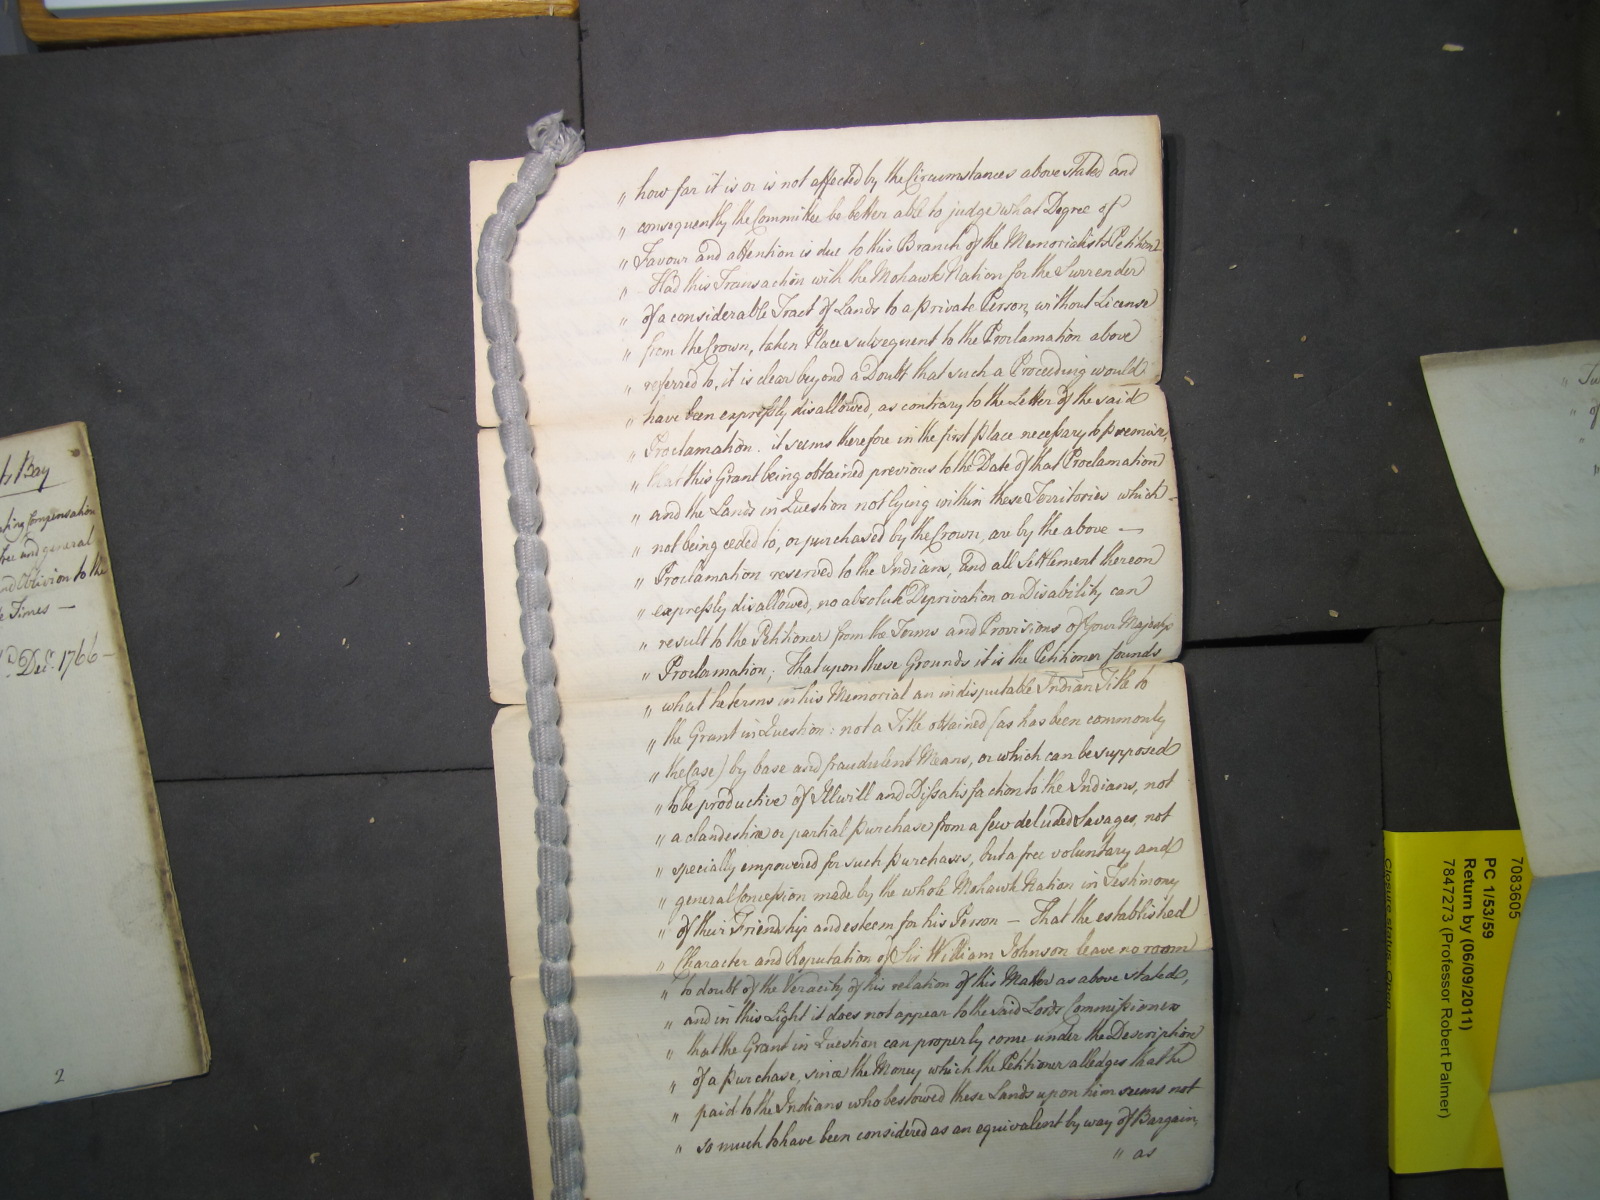 " how far it is or is not affected by the Circumstances above stated and
" consequently the Committee be better able to judge what Degree of
" Favour and attention is due to this Branch of the Memorialists Petition
" Had this Transaction with the Mohawk Nation for the Surrender
" of a considerable Tract of Lands to a private Person, without License
" from the Crown, taken Place subsequent to the Proclamation above
" referred to, it is clear beyond a Doubt that such a Proceeding would
" have been expressly disallowed, as contrary to the Letter of the said
" Proclamation. it seems therefore in the first place necessary to premise,
" that this Grant being obtained previous to the Date of that Proclamation
" and the Lands in Question not lying within these Territories which —
" not being ceded to, or purchased by the Crown, are by the above —
" Proclamation reserved to the Indians, and all Settlement thereon
" expressly disallowed, no absolute Deprivation or Disability can
" result to the Petitioner from the Terms and Provisions of Your Majestys
" Proclamation; That upon these Grounds it is the Petitioner founds
" what he terms in his Memorial an indisputable Indian Title to
" the Grant in Question: not a Title obtained (as has been commonly
" the Case) by base and fraudulent Means, or which can be supposed
" to be productive of Illwill and Dissatisfaction to the Indians, not
" a clandestine or partial purchase from a few deluded Savages, not
" specially empowered for such purchases, but a free voluntary and
" general Concession made by the whole Mohawk Nation in Testimony
" of their Friendship and esteem for his Person — That the established
" Character and Reputation of Sir William Johnson leave no room
" to doubt of the Veracity of his relation of this Matter as above stated,
" and in this Light it does not appear to the said Lords Commissioners
" that the Grant in Question can properly come under the Description
" of a purchase, since the Money which the Petitioner alledges that he
" paid to the Indians who bestowed these Lands upon him seems not
" so much to have been considered as an equivalent by way of Bargain,
" as
Bay
Compensation
free and general
and Oblivion to the
Times —
Decr. 1766 —
2
7083605
PC 1/53/59
Return by (06/09/2011)
7847273 (Professor Robert Palmer)
Closure status: Open